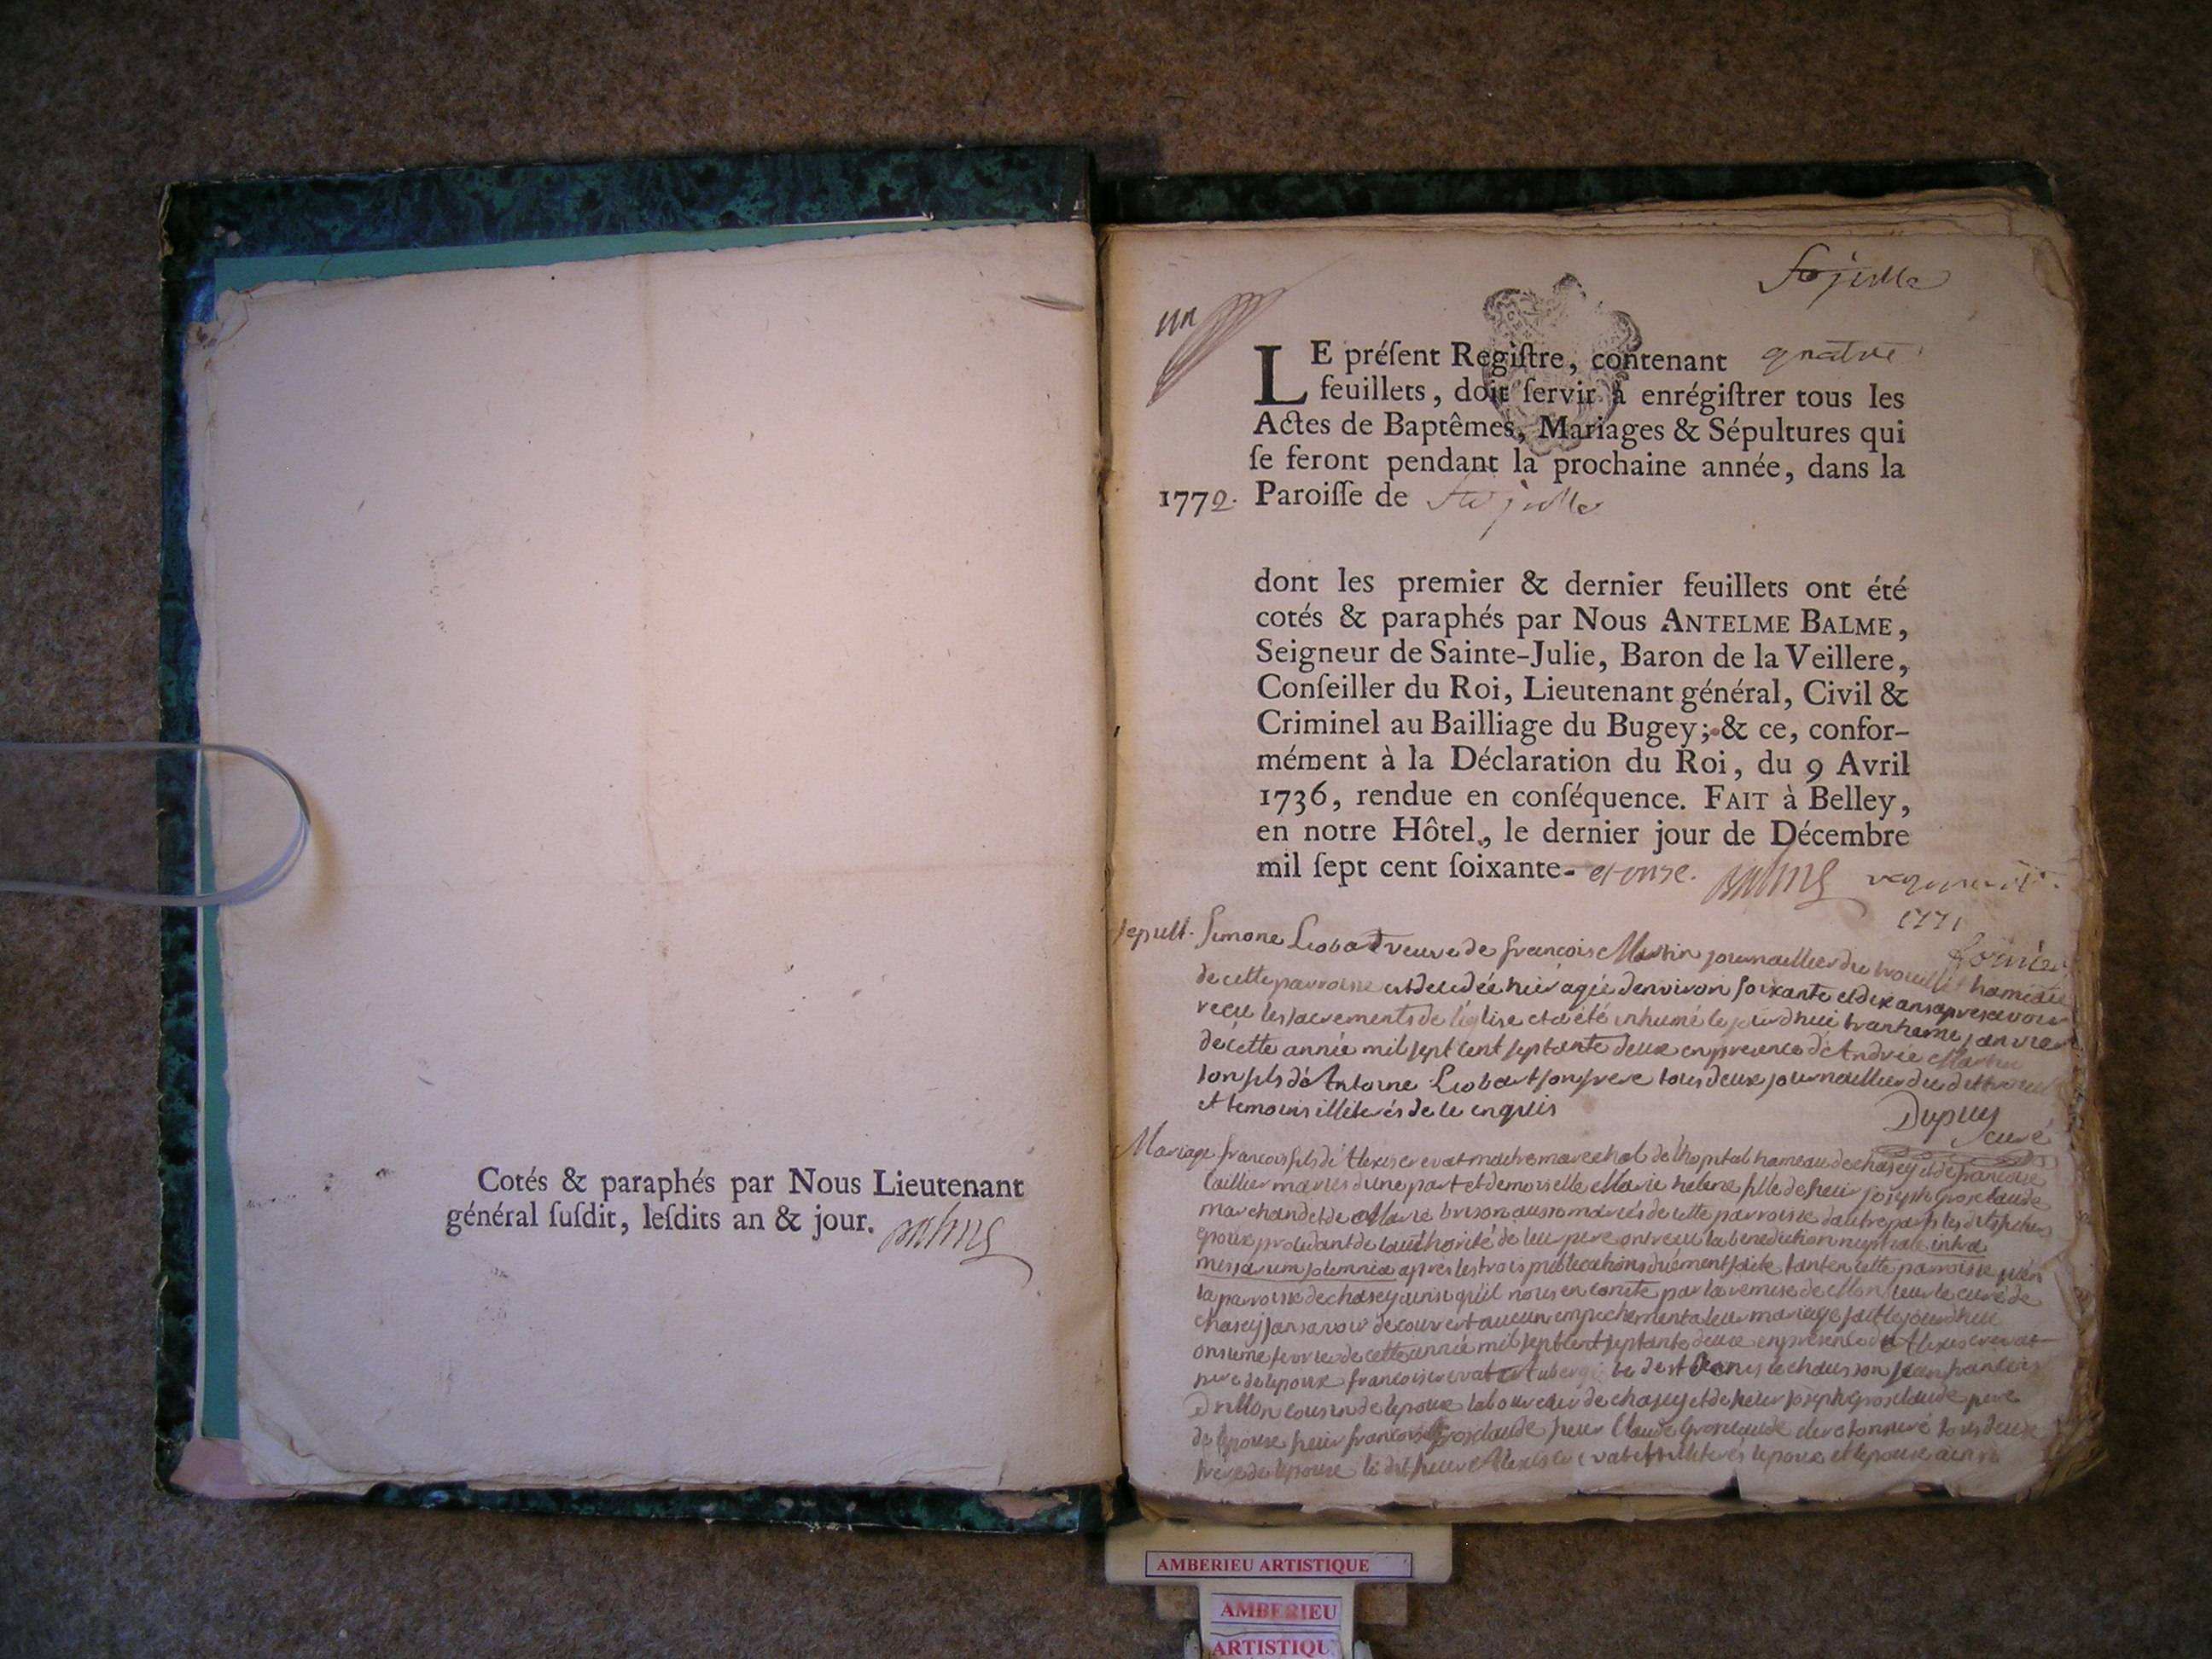 Cotés & paraphés par Nous Lieutenant
général ſuſdit, leſdits an & jour. Balme
un
Ste julie
LE préſent Regiſtre, contenant quatre
feuillets, doit ſervir à enrégiſtrer tous les
Actes de Baptêmes, Mariages & Sépultures qui
ſe feront pendant la prochaine année, dans la
1772. Paroiſſe de Ste julie
dont les premier & dernier feuillets ont été
cotés & paraphés par Nous ANTELME BALME,
Seigneur de Sainte-Julie, Baron de la Veillere,
Conſeiller du Roi, Lieutenant général, Civil &
Criminel au Bailliage du Bugey; & ce, confor-
mément à la Déclaration du Roi, du 9 Avril
1736, rendue en conſéquence. FAIT à Belley,
en notre Hôtel, le dernier jour de Décembre
mil ſept cent ſoixante- et onze. Balme
1771
sepult. Simone Liobard veuve de francois Martin journallier du hameau
de cette parroisse est decedée hier agée denviron soixante et dix ans apres avoir
recu les sacrements de léglise et a été inhumé le jourdhui janvier
de cette année mil sept cent septante deux en presence de Andrée Martin
son fils dé Antoine Liobart son frere tous deux journallier du dit
et temoins illiterés de ce enquis
Dupuy
curé
Mariage francois fils dé Alexis crevat maitre marechal de lhopital hameau de chasey et de francoise
mariés dune part et demoiselle Marie helene fille de sieur joseph Grosclaude
marchand et de Marie brison aussi mariés de cette parroisse dautre part les dits futurs
epoux de lauthorité de leur pere ont recu la benediction nuptiale intra
missarum solemnia apres les trois publications duement faite tant en cette parroisse quen
la parroisse de chasey ainsi quil nous en conste par la remise de Monsieur le curé de
chasey sans avoir decouvert aucun empechement a leur mariage fait le jourdhui
onsieme fevrier de cette année mil sept cent septante deux en presence de Alexis crevat
pere de lepoux francois crevat de st Denis le chausson jean francois
cousin de lepoux laboureur de chasey et de sieur joseph Grosclaude pere
de lepouse sieur francois Grosclaude sieur Claude Grosclaude tous deux
frere de lepouse le dit sieur Alexis crevat illiterés lepoux et lepouse
AMBERIEU ARTISTIQUE
AMBERIEU
ARTISTIQU